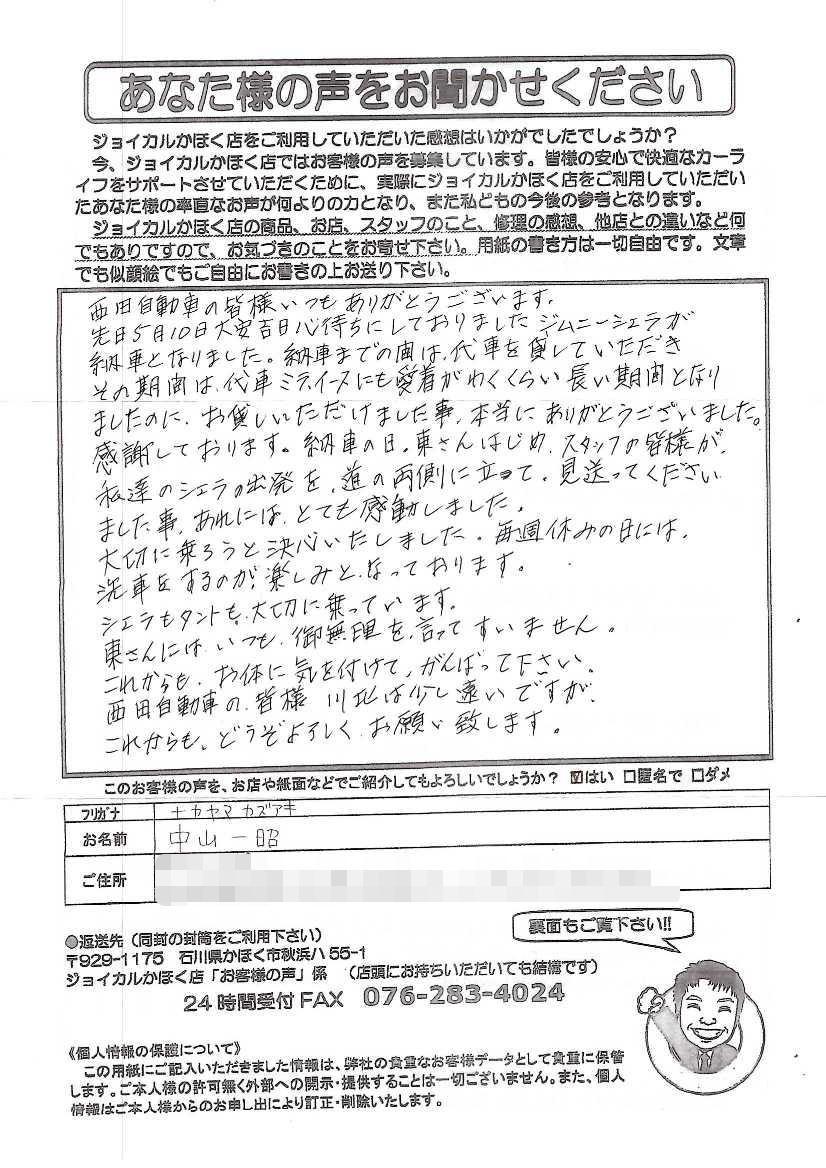 あなた様の声をお聞かせください
ジョイカルかほく店をご利用していただいた感想はいかがでしたでしょうか？
今、ジョイカルかほく店ではお客様の声を募集しています。皆様の安心で快適なカーラ
イフをサポートさせていただくために、実際にジョイカルかほく店をご利用していただい
たあなた様の率直なお声が何よりの力となり、また私どもの今後の参考となります。
ジョイカルかほく店の商品、お店、スタッフのこと、修理の感想、他店との違いなど何
でもありですので、お気づきのことをお寄せ下さい。用紙の書き方は一切自由です。文章
でも似顔絵でもご自由にお書きの上お送り下さい。
西田自動車の皆様いつもありがとうございます。
先日5月10日大安吉日心待ちにしておりましたジムニーシエラが
納車となりました。納車までの間は、代車を貸していただき
その期間は、代車ミライースにも愛着がわくくらい長い期間となり
ましたのに、お貸しいただけました事、本当にありがとうございました。
感謝しております。納車の日、東さんはじめ、スタッフの皆様が、
私達のシエラの出発を、道の両側に立って、見送ってください
ました事、あれには、とても感動しました。
大切に乗ろうと決心いたしました。毎週休みの日には、
洗車をするのが、楽しみと、なっております。
シエラもタントも、大切に乗っています。
東さんには、いつも、御無理を、言ってすいません。
これからも、お体に気を付けて、がんばって下さい。
西田自動車の、皆様 川北は少し遠いですが、
これからも、どうぞよろしく、お願い致します。
このお客様の声を、お店や紙面などでご紹介してもよろしいでしょうか？ ☑はい □匿名で □ダメ
フリガナ ナカヤマ カズアキ
お名前 中山一昭
ご住所
裏面もご覧下さい!!
●返送先（同封の封筒をご利用下さい）
〒929-1175 石川県かほく市秋浜ハ55-1
ジョイカルかほく店「お客様の声」係 （店頭にお持ちいただいても結構です）
24時間受付FAX 076-283-4024
《個人情報の保護について》
この用紙にご記入いただきました情報は、弊社の貴重なお客様データとして貴重に保管
します。ご本人様の許可無く外部への開示・提供することは一切ございません。また、個人
情報はご本人様からのお申し出により訂正・削除いたします。